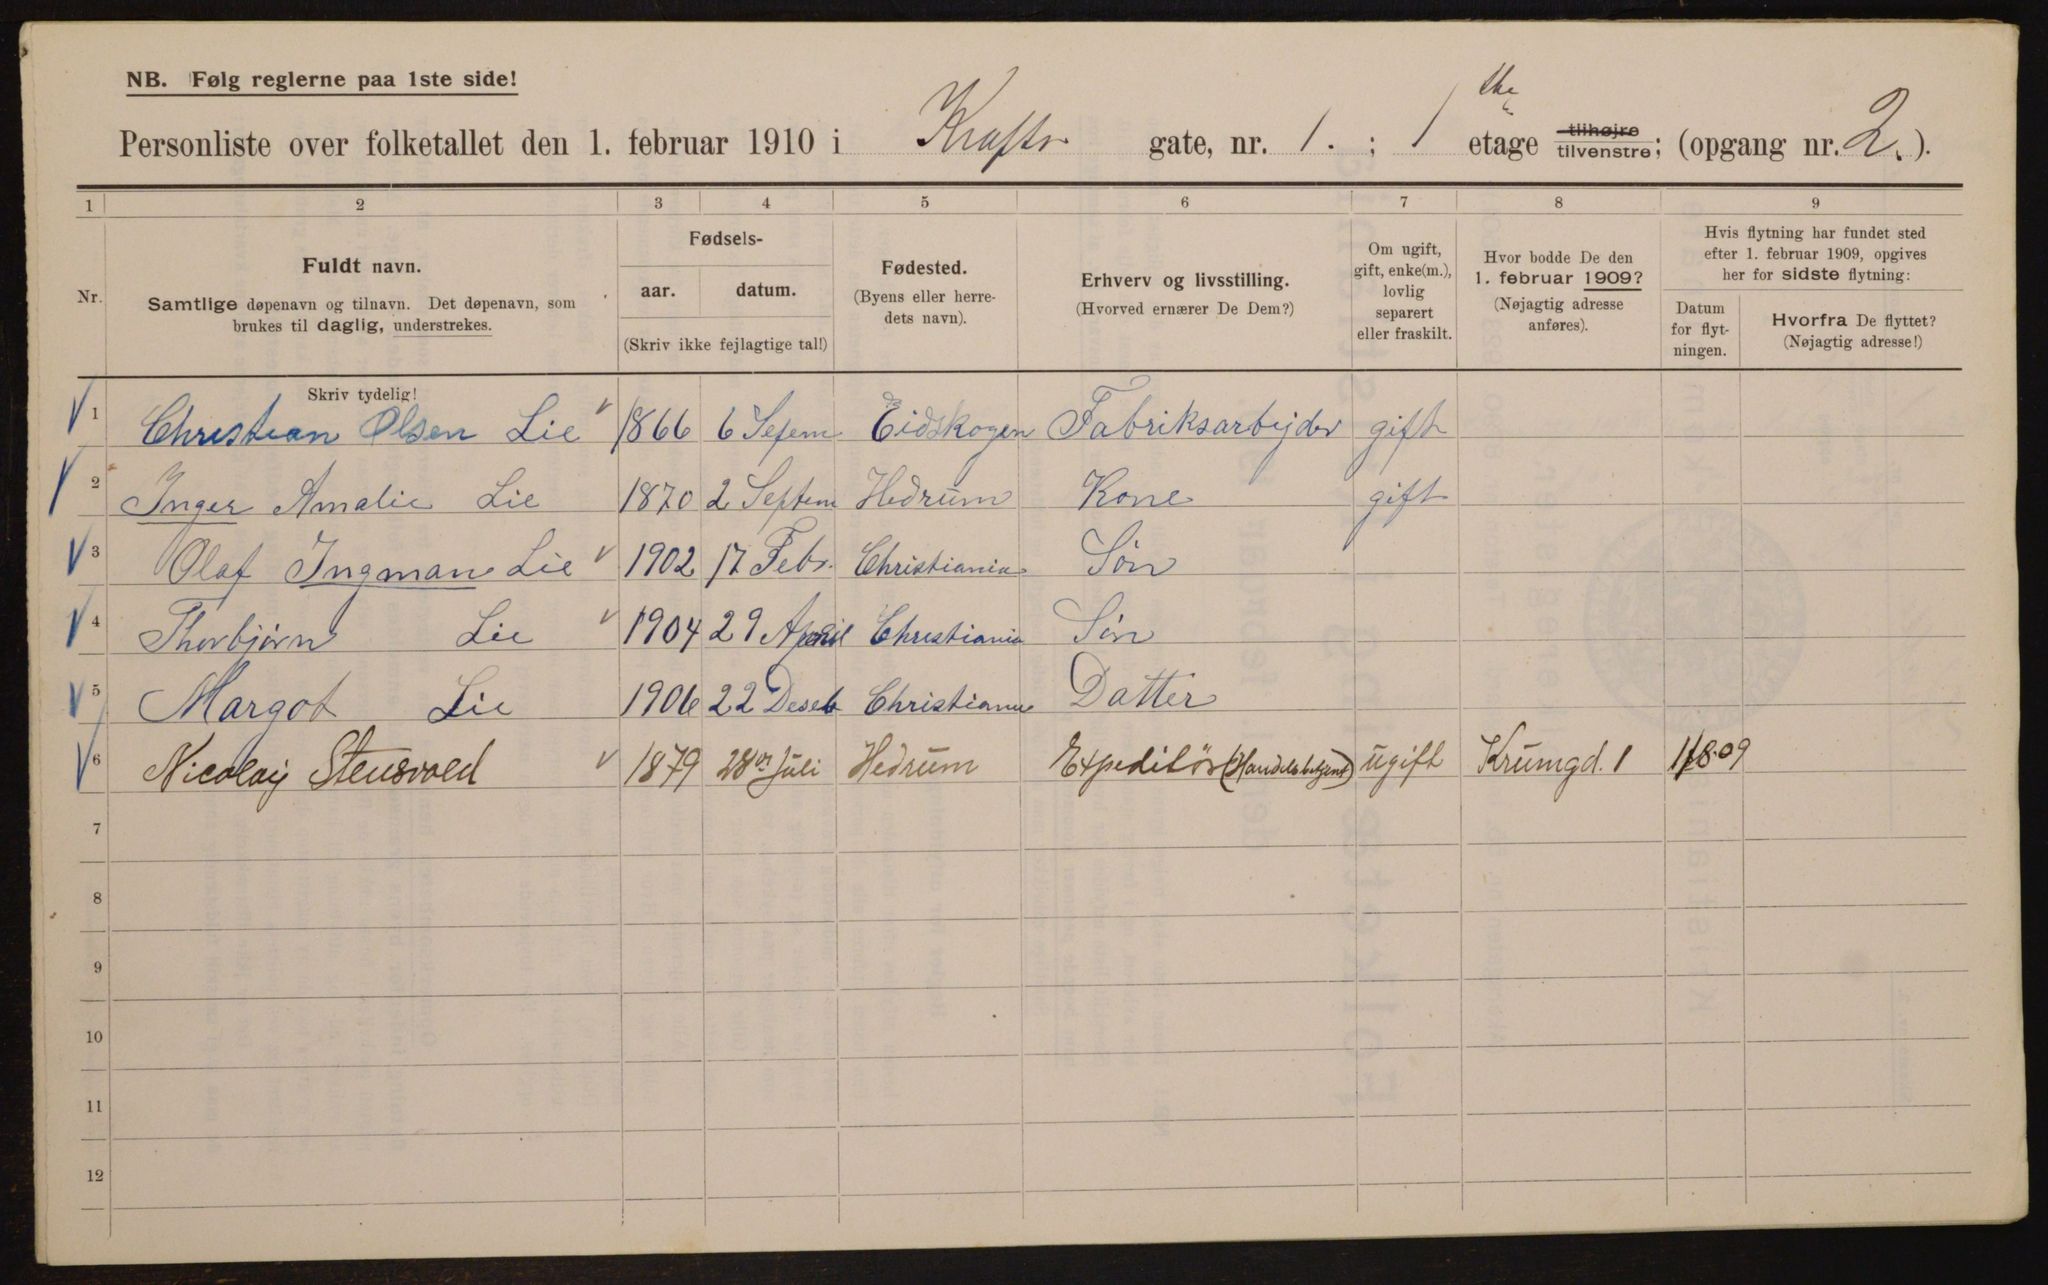 NB. Følg reglerne paa 1ste side!
Personliste over folketallet den 1. februar 1910 i Krafts gate, nr. 1. ; 1 ste etage tilhøjre tilvenstre; (opgang nr. 2.).
1 2 3 4 5 6 7 8 9
Nr.
Fuldt navn.
Samtlige døpenavn og tilnavn. Det døpenavn, som
brukes til daglig, understrekes.
Fødsels-
aar. datum.
(Skriv ikke fejlagtige tal!)
Fødested.
(Byens eller herre-
dets navn).
Erhverv og livsstilling.
(Hvorved ernærer De Dem?)
Om ugift,
gift, enke(m.),
lovlig
separert
eller fraskilt.
Hvor bodde De den
1. februar 1909?
(Nøjagtig adresse
anføres).
Hvis flytning har fundet sted
efter 1. februar 1909, opgives
her for sidste flytning:
Datum
for flyt-
ningen.
Hvorfra De flyttet?
(Nøjagtig adresse!)
Skriv tydelig!
1 Christian Olsen Lie 1866 6 Sepem Eidskogen Fabriksarbejder gift
2 Inger Amalie Lie 1870 2 Septem Hedrum Kone gift
3 Olaf Ingman Lie 1902 17 Febr. Christiania Søn
4 Thorbjørn Lie 1904 29 April Christiania Søn
5 Margot Lie 1906 22 Deseb Christiania Datter
6 Nicolaij Stensvold 1879 28 Juli Hedrum Expeditør (Handelsbetjent) ugift Krumgd. 1 1/8-09
7
8
9
10
11
12